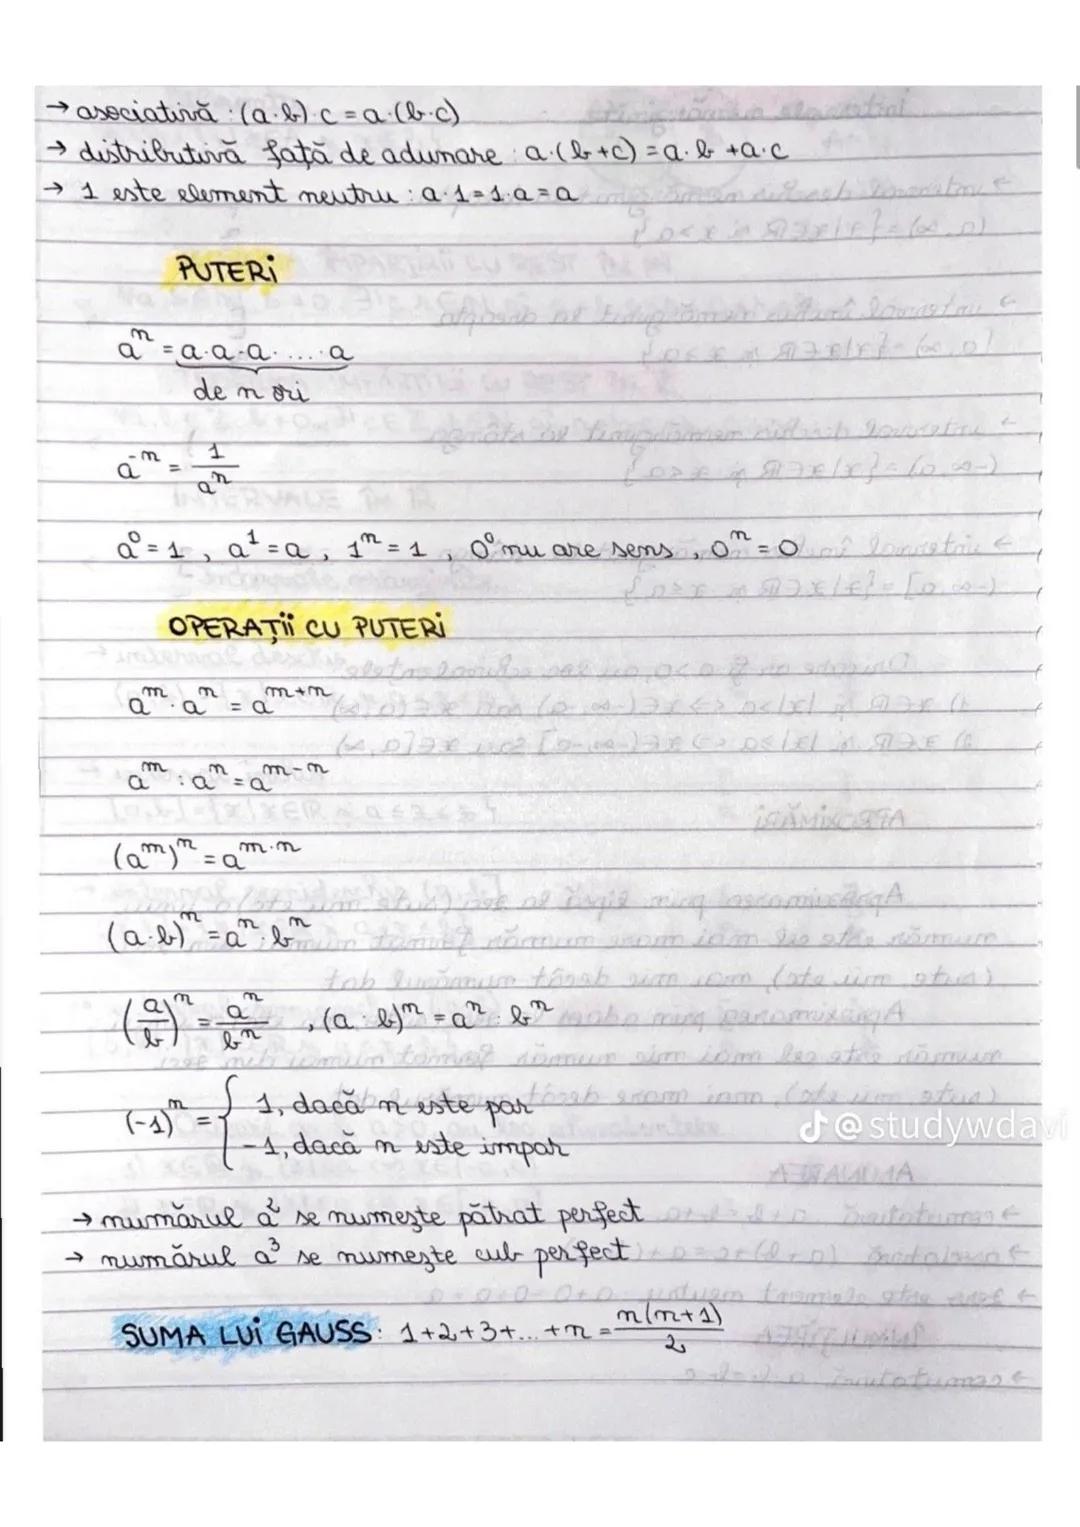 → asociativă : (a·b)·c = a·(b·c)
→ distributivă față de adunare : a·(b+c) = a·b + a·c
→ 1 este element neutru : a·1 = 1·a = a
PUTERI
aⁿ = a·a·a·....·a
de n ori
a⁻ⁿ = 1/aⁿ
a⁰ = 1 , a¹ = a , 1ⁿ = 1 , 0⁰ nu are sens , 0ⁿ = 0
OPERAȚII CU PUTERI
aᵐ · aⁿ = aᵐ⁺ⁿ
aᵐ : aⁿ = aᵐ⁻ⁿ
(aᵐ)ⁿ = aᵐ·ⁿ
(a·b)ⁿ = aⁿ · bⁿ
(a/b)ⁿ = aⁿ/bⁿ , (a : b)ⁿ = aⁿ : bⁿ
(-1)ⁿ = { 1, dacă n este par
-1, dacă n este impar
@studywdavi
→ numărul a² se numește pătrat perfect
→ numărul a³ se numește cub perfect
SUMA LUI GAUSS: 1+2+3+...+n = n(n+1)/2